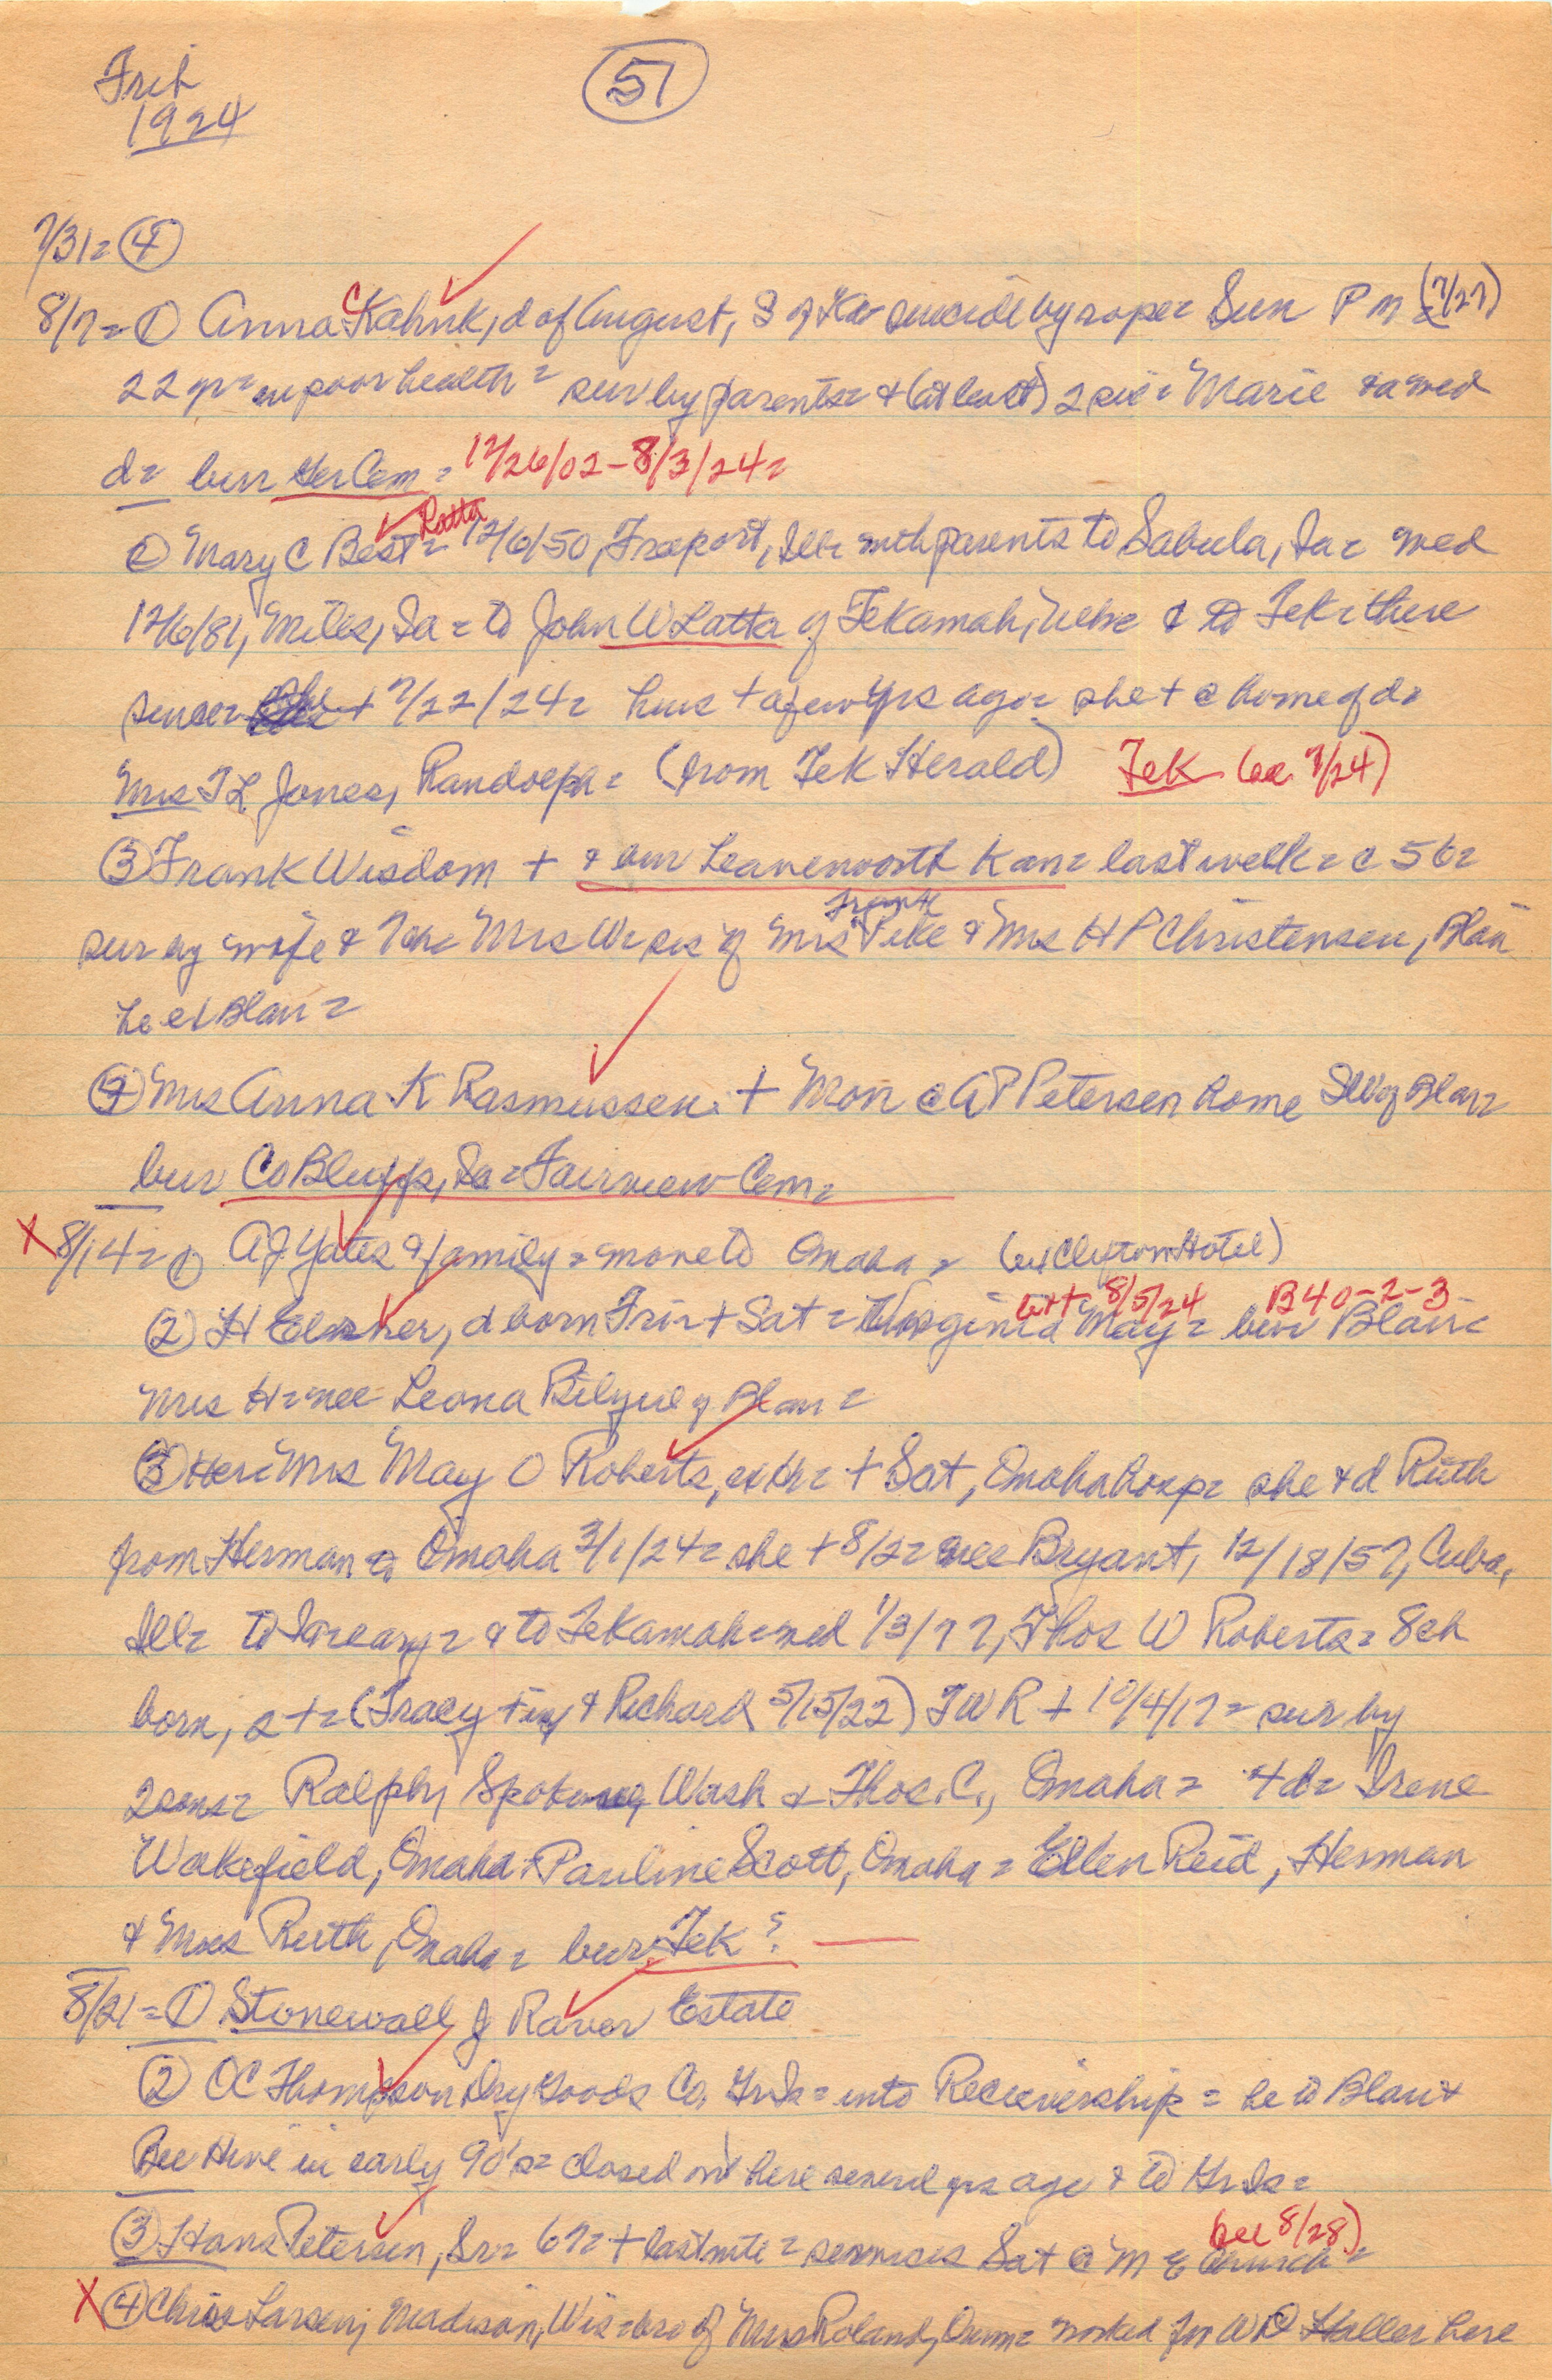 Trib
1924
51
7/31= 4
8/7= 1 Anna CKahnk, d of August, S of Her suicide by rope= Sun Pm (7/27)
22 yr= in poor health= sur by parents= & (at least) 2 sis= Marie & a med
d= bur Her Cem= 12/26/02-8/3/24=
Latta
2 Mary C Best= 12/6/50, Freeport, Ill= with parents to Sabula, Ia= med
12/6/81, Miles, Ia= to John W Latta of Tekamah, Nebr= & to Tek= there
since= + 7/22/24= hus + a few yrs ago= she + @ home of d=
Mrs T L Jones, Randolph= (from Tek Herald) Tek (ca 7/24)
3 Frank Wisdom + & bur Leavenworth Kan= last week= c 56=
Frank
sur by wife & 7ch= Mrs W= sis of Mrs Pike & Mrs H P Christensen, Blair
he ex Blair=
4 Mrs Anna K Rasmussen + Mon @ A P Petersen home SW of Blair=
bur Co Bluffs, Ia= Fairview Cem=
X 8/14= 1 A J Yates & family= move to Omaha= (ex Clifton Hotel)
8/5/24 B40-2-3
2 H , d born Fri= + Sat= Virginia May= bur Blair=
Mrs H= nee Leona Bilyeu of Blair=
3 Her= Mrs May O Roberts, ex H= + Sat, Omaha hosp= she & d Ruth
from Herman to Omaha 3/1/24= she + 8/2= nee Bryant, 12/18/57, Cuba,
Ill= to Ia= early= & to Tekamah= med 1/3/77, Thos W Roberts= 8ch
born, 2+= (Tracy + inf & Richard 5/15/22) T W R + 10/4/17= sur by
2 sons= Ralph, Spokane, Wash & Thos. C., Omaha= 4 d= Irene
Wakefield, Omaha= Pauline Scott, Omaha= Ellen Reid, Herman
& Miss Ruth, Omaha= bur= Tek?
8/21= 1 Stonewall J Raver Estate
2 OC Thompson Dry Goods Co. Gr Is= into Receivership= he to Blair &
Bee Hive in early 90's= closed out here several yrs ago & to Gr Is=
(see 8/28)
3 Hans Petersen, Sr= 67= + last nite= services Sat @ M E Church=
X 4 Chris Larsen, Madison, Wis= bro of Mrs Roland, Orum= worked for W D Haller here